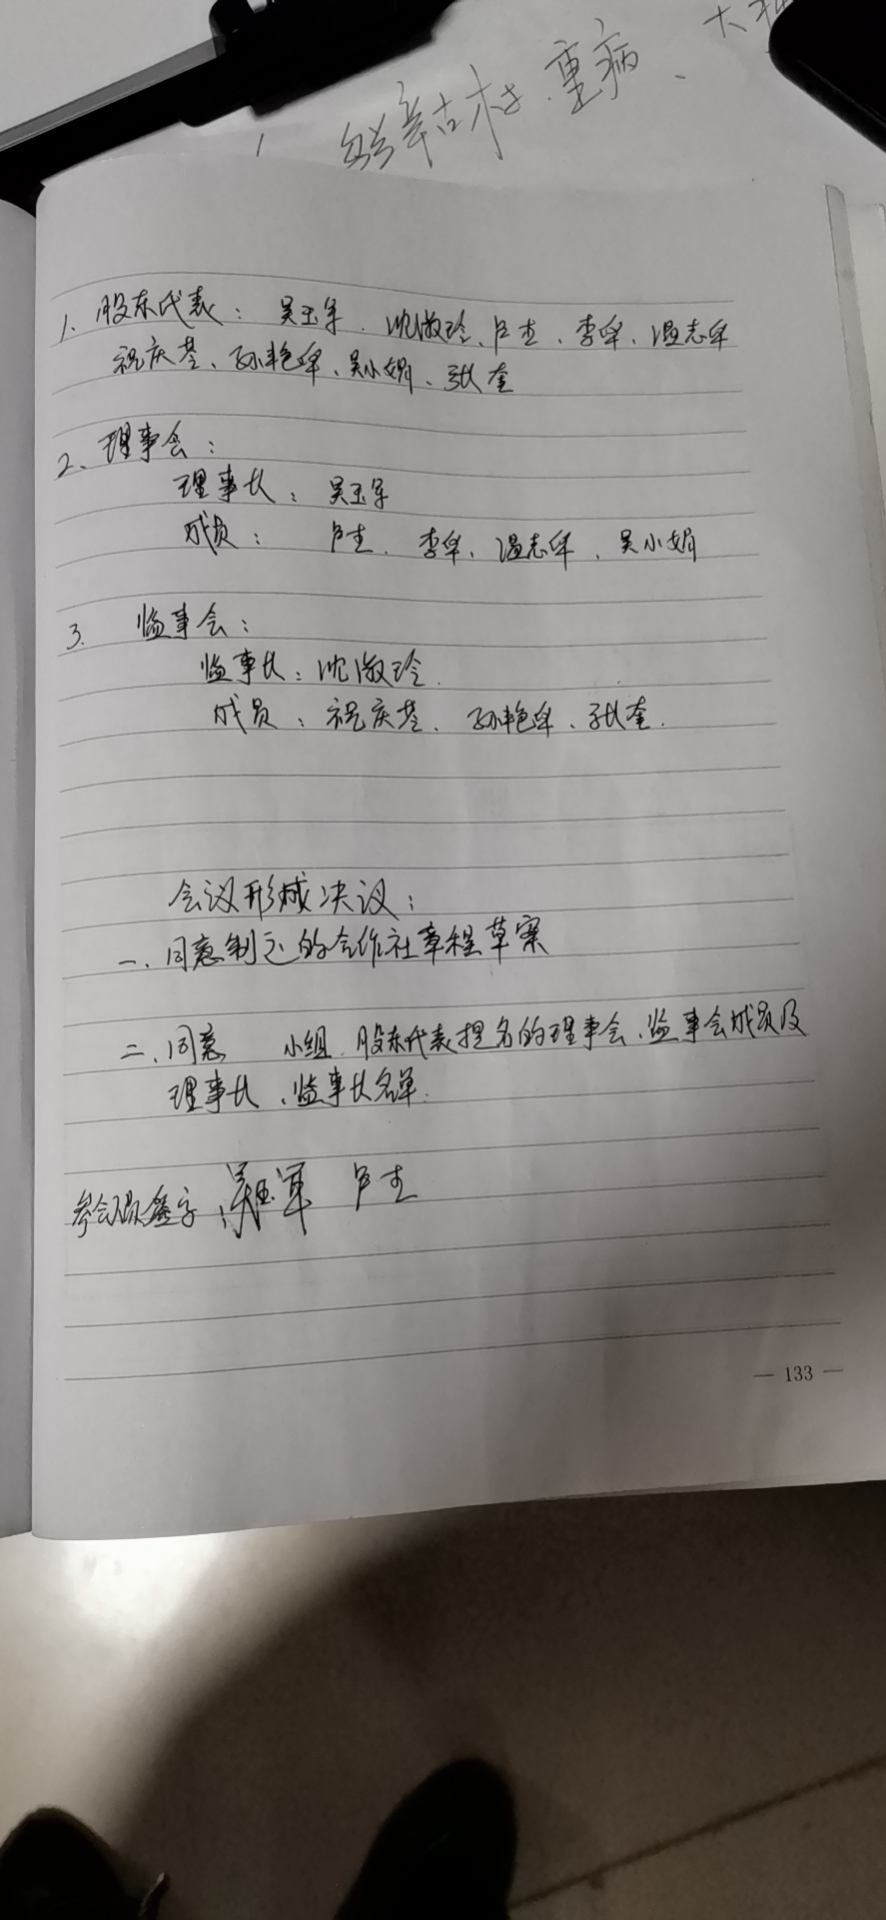 重病、大
1、股东代表：吴玉军、沈淑玲、卢杰、李军、温志军
祝庆基、孙艳军、吴小娟、张奎
2、理事会：
理事长：吴玉军
成员：卢杰、李军、温志军、吴小娟
3. 监事会：
监事长：沈淑玲.
成员：祝庆基、孙艳军、张奎.
会议形成决议：
一、同意制定的合作社章程草案
二、同意 小组、股东代表提名的理事会、监事会成员及
理事长、监事长名单.
参会人员签字：吴玉军 卢杰
— 133 —